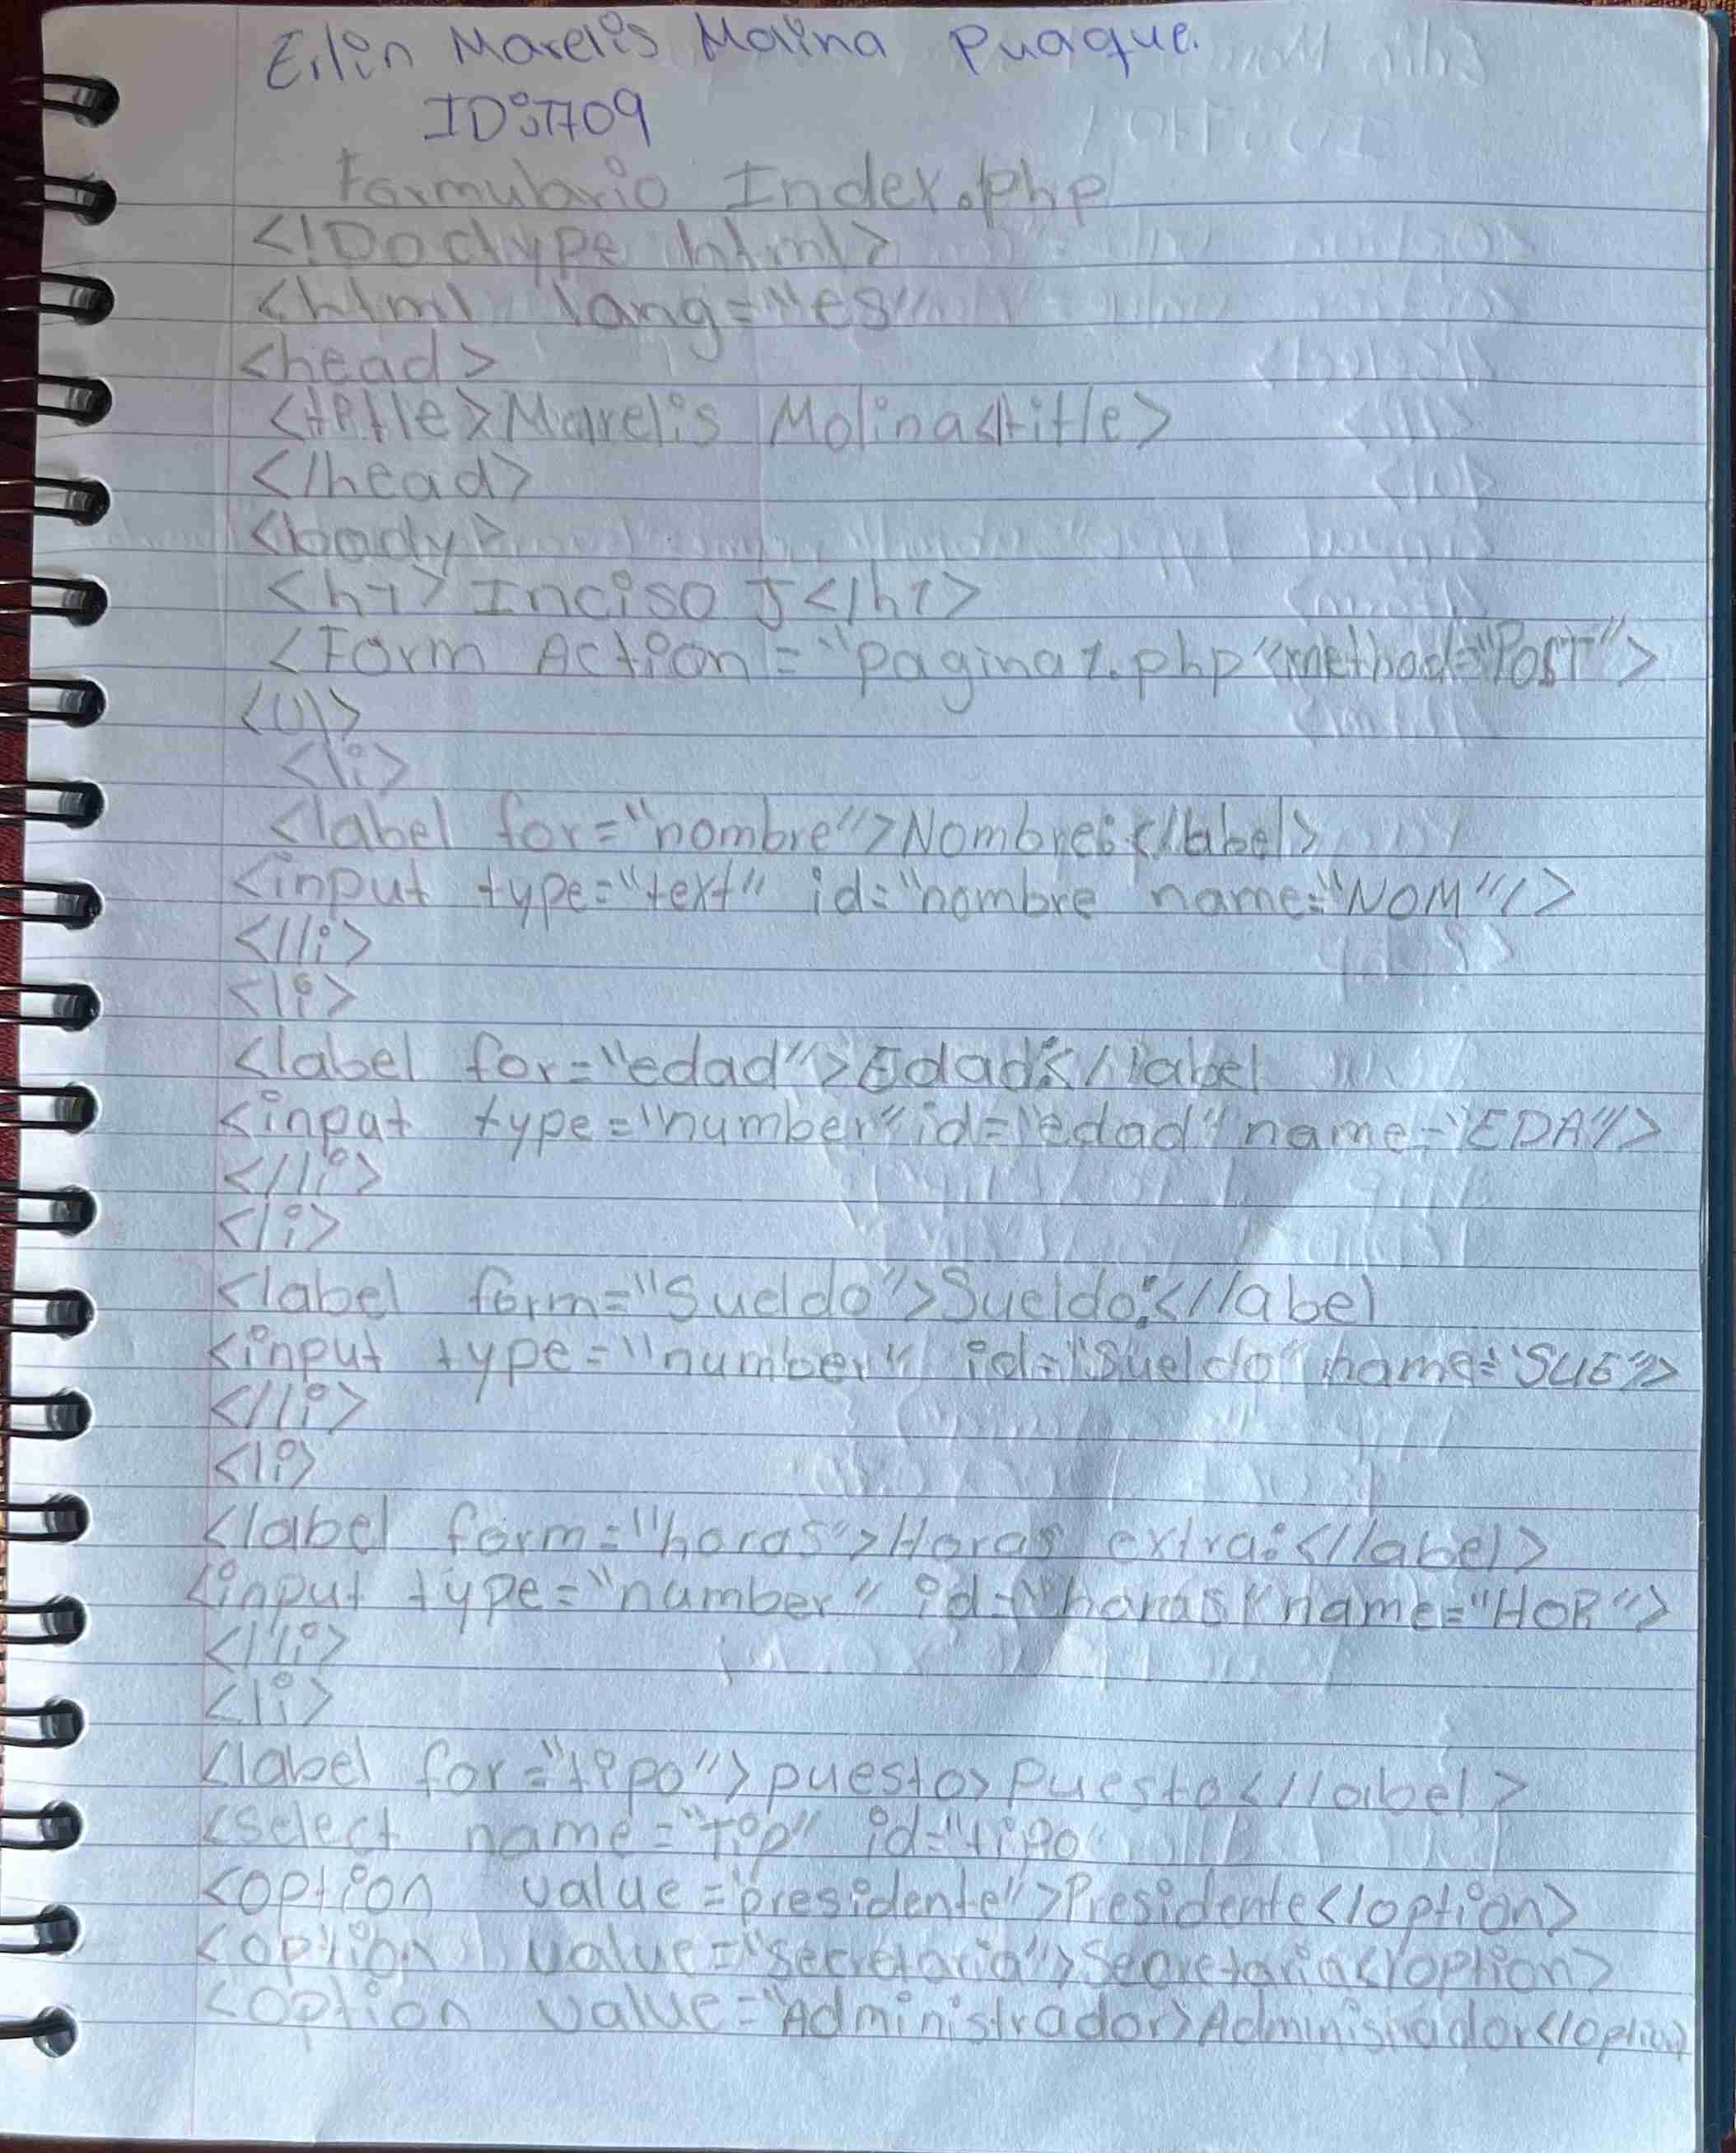 Eilin Marelis Molina Puaque.
ID:1709
Formulario Index.php
<!Doctype html>
<html lang="es"
<head>
<title>Marelis Molina</title>
</head>
<body>
<h1>Inciso J</h1>
<Form Action="pagina1.php"method="POST">
<ul>
<li>
<label for="nombre">Nombre:</label>
<input type="text" id="nombre name="NOM"/>
</li>
<li>
<label for="edad">Edad:</label
<input type="number" id="edad" name="EDA"/>
</li>
<li>
<label form="Sueldo">Sueldo:</label
<input type="number" id="Sueldo" name="SUE">
</li>
<li>
<label form="horas">Horas extra:</label>
<input type="number" id="horas" name="HOR">
</li>
<li>
<label for="tipo">puesto>Puesto</label>
<select name="Tip" id="tipo
<option value="presidente">Presidente</option>
<option value="secretaria">Secretaria</option>
<option value="Administrador>Administrador</option